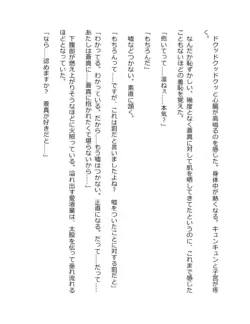 ドクッドクッドクッと心臓が高鳴るのを感じた。身体中が熱くなる。キュンキュンと子宮が疼
く。
なんだか恥ずかしい、幾度となく蒼真に対して肌を晒してきたというのに、これまで感じた
こともないほどの羞恥を覚えた。
「抱いてって……凛ねぇ、本気？」
「もちろんだ」
嘘などつかない。素直に頷く。
「もちろんって……ですが、これは罰だと言いましたよね？　嘘をついたことに対する罰だと」
「わかってる。わかっている。だから……もう嘘はつかない。正直になる。だって……だって……
あたしは蒼真に……蒼真に抱かれたくて堪らないから……」
下腹部が燃え上がりそうなほどに火照っている。溢れ出す愛液量は、太股を伝って垂れ流れる
ほどとなっていた。
「なら……認めますか？　蒼真が好きだと……」